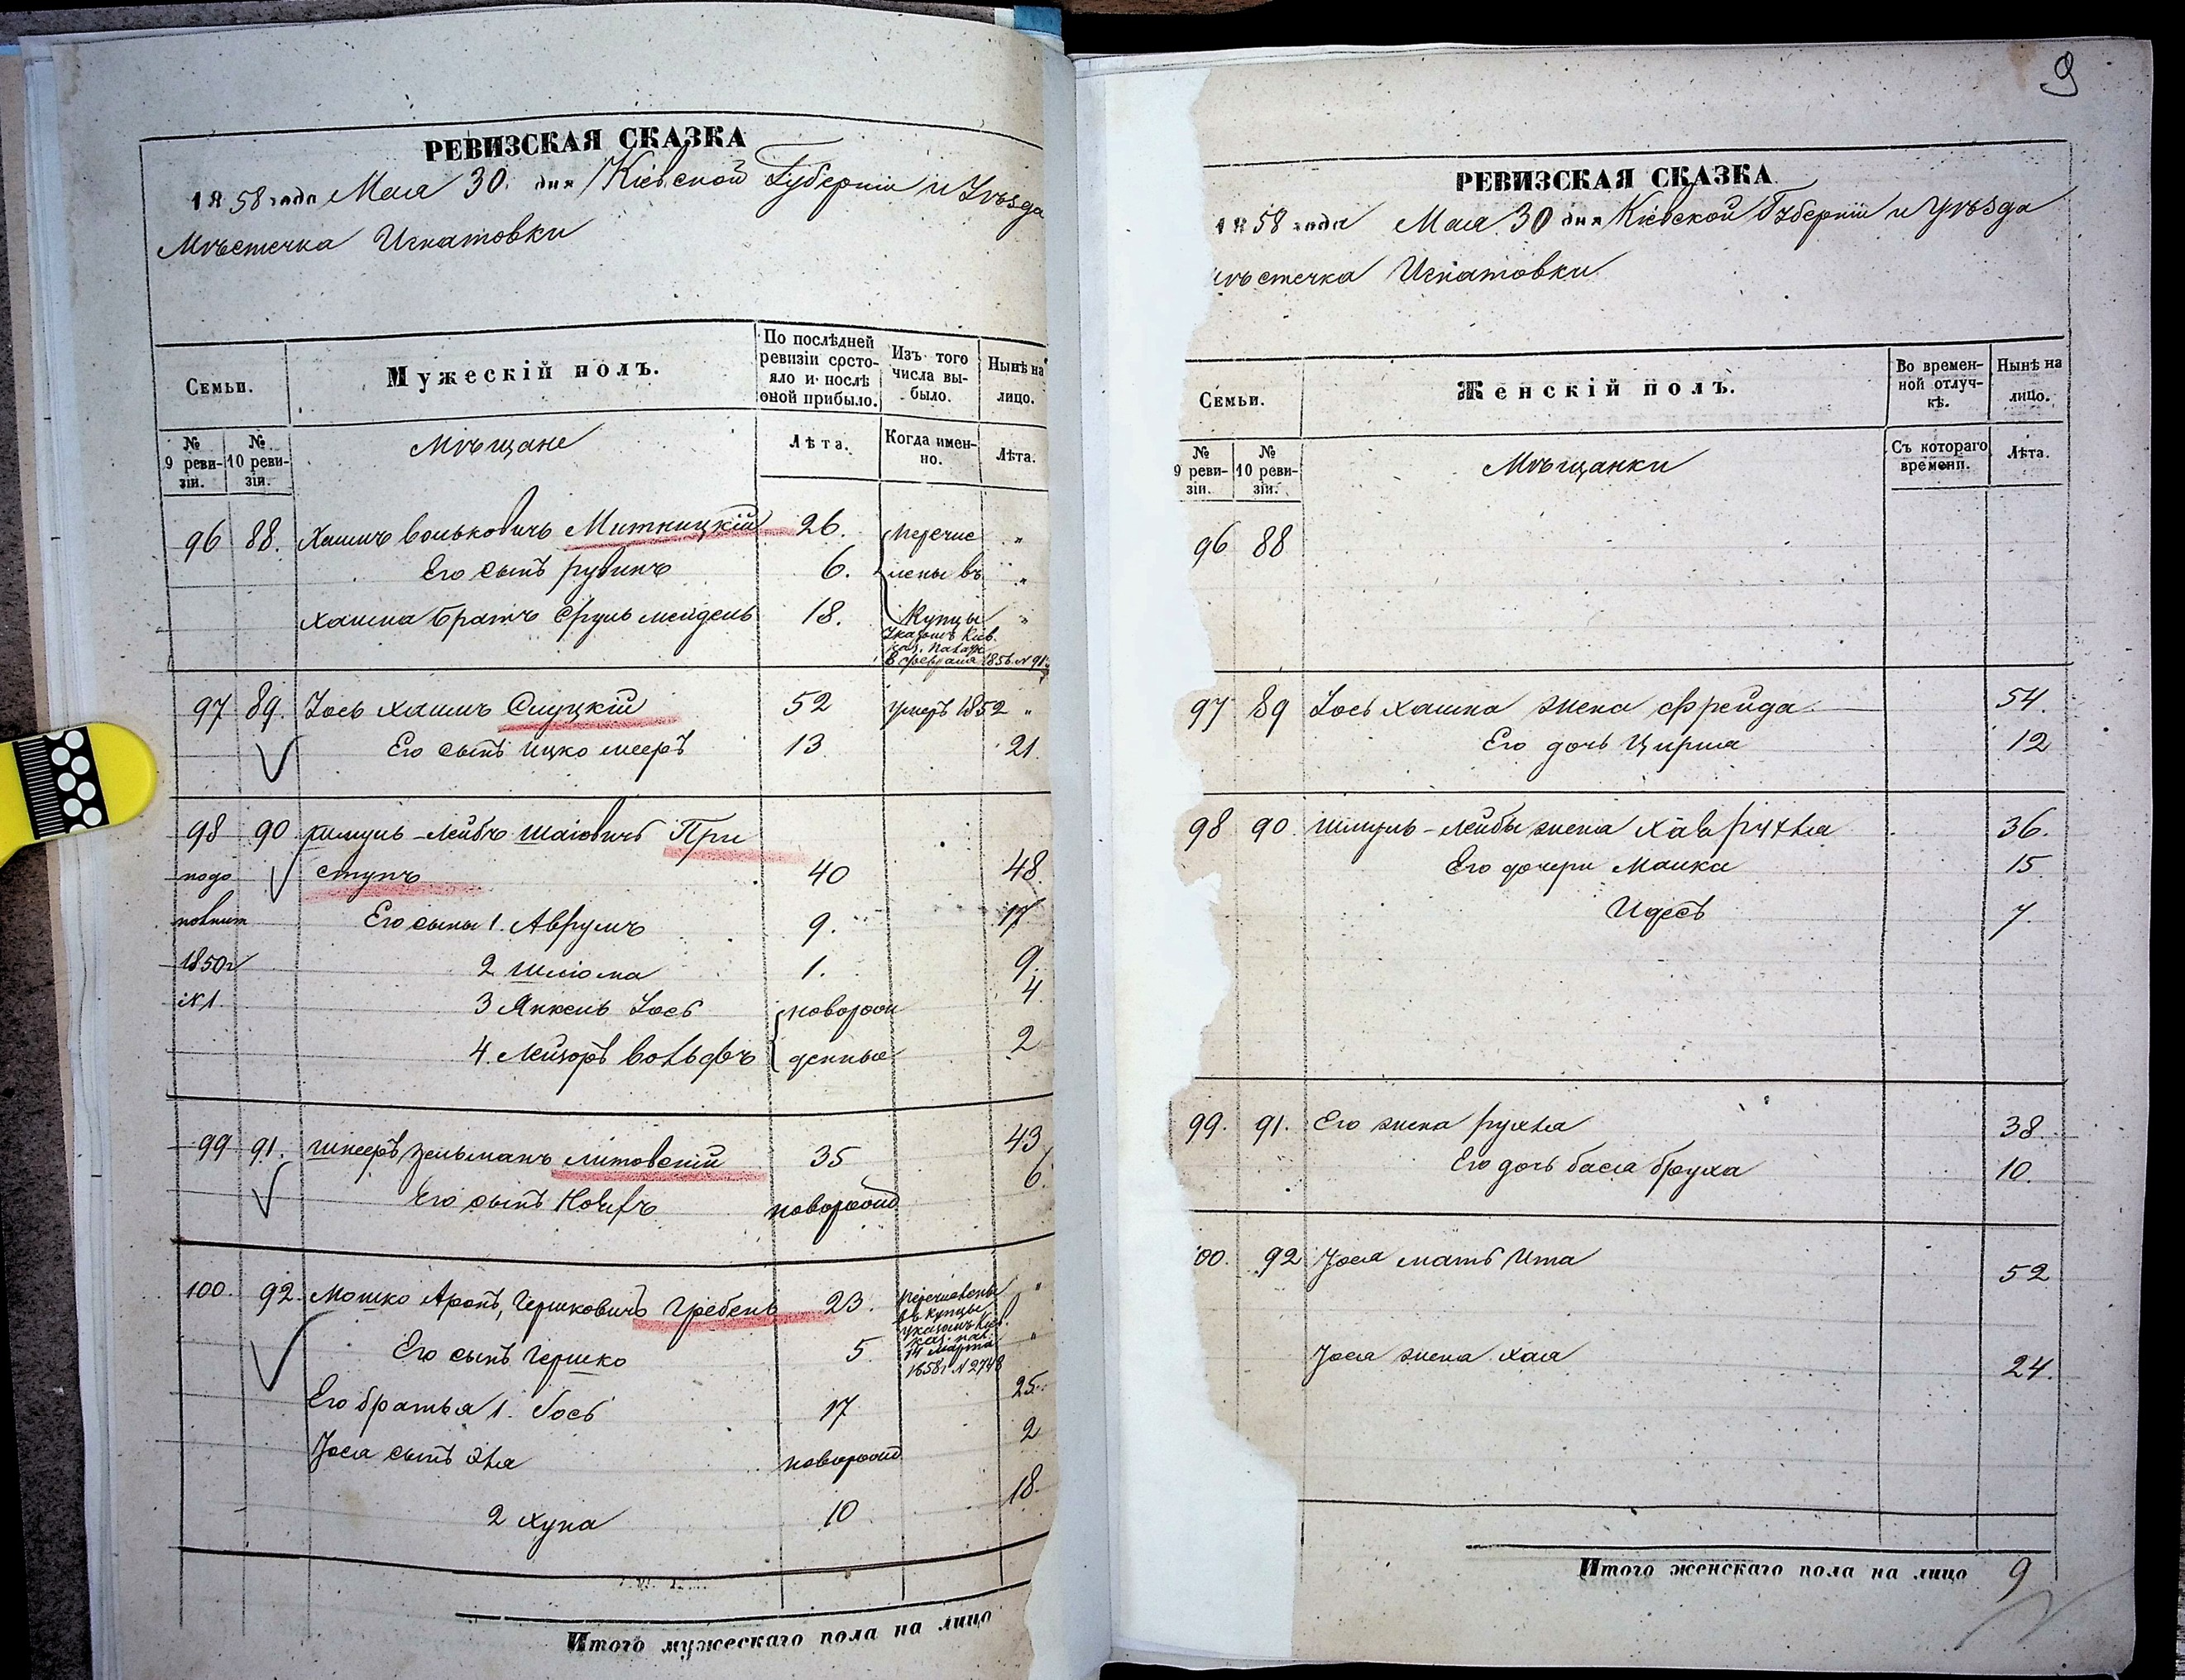 РЕВИЗСКАЯ СКАЗКА
1858 года Мая 30. дня Кіевской Губерніи и Уѣзда
Мѣстечка Игнатовки
Семьи.
Мужескій полъ.
По послѣдней ревизіи состояло и послѣ оной прибыло.
Изъ того числа выбыло.
Нынѣ на лицо.
№ 9 ревизіи.
№ 10 ревизіи.
Мѣщане
Лѣта.
Когда именно.
Лѣта.
96 88. Хаимъ Вольковичъ Митницкій 26. Перечис "
Его сынъ Рувинъ 6. лены въ "
Хаима братъ Сруль Мендель 18. Купцы "
Указомъ Кіев.
каз. палат
8 февраля 1856 N
97 89. Іось Хаимъ Слуцкій 52 умеръ 1852 "
Его сынъ Ицко Мееръ 13 21.
98 90 Шмуль-Лейбъ Шаіовичъ При
подо ступъ 40 48.
полнит Его сыны 1. Аврумъ 9. 17
1850г 2 Шліома 1. 9.
N1. 3 Янкель Іось новорож 4.
4. Лейзоръ Вольфъ денные 2
99 91. Шнееръ Зельманъ Литовскій 35 43
Его сынъ новорожд 6.
100. 92. Мошко Аронъ Гершковичъ Гребень 23. Перечислены "
въ купцы
указомъ Кіев.
каз. пал.
14 марта
1858 N 2748
Его сынъ Гершко 5 "
Его братья 1. Іось 17 25.
Іося сынъ Эля новорожд 2
2 Хуна 10 18.
Итого мужескаго пола на лицо
9
РЕВИЗСКАЯ СКАЗКА
1858 года Мая 30 дня Кіевской Губерніи и Уѣзда
мѣстечка Игнатовки
Семьи.
Женскій полъ.
Во временной отлучкѣ.
Нынѣ на лицо.
№ 9 ревизіи.
№ 10 ревизіи.
Мѣщанки
Съ котораго времени.
Лѣта.
96 88
97 89 Іось Хаима жена Фрейда 54.
Его дочь Цирля 12
98 90. Шмуль-Лейбы жена Хая Рухля 36.
Его дочери Малка 15
Идесь 7.
99. 91. Его жена Рухля 38.
Его дочь Бася Бруха 10.
00. 92 Іося мать Ита 52
Іося жена Хая 24.
Итого женскаго пола на лицо 9